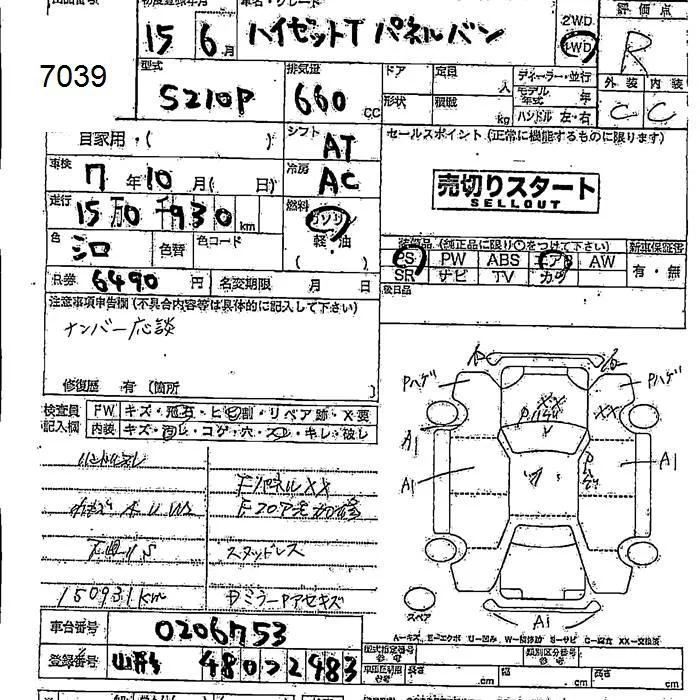 初度登録年月 車名・グレード 評価点
15年 6月 ハイゼットT パネルバン 2WD 4WD R
7039
型式 S210P 排気量 660 CC ドア 定員 人 ディーラー・並行
形状 積載 kg モデル年式 年 ハンドル 左・右
外装 内装
C C
自家用・( ) シフト AT セールスポイント(正常に機能するものに限ります)
車検 7年10月(日) 冷房 AC
売切りスタート
SELLOUT
走行 150930km 燃料 ガソリン 軽油 ( )
色 シロ 色替 色コード
装備品(純正品に限り○をつけて下さい) 新車保証書
PS PW ABS エアB AW 有・無
SR ナビ TV カワ
R券 6490円 名変期限 月 日 後日品
注意事項申告欄(不具合内容等は具体的に記入して下さい)
ナンバー応談
修復歴 有(箇所 )
検査員記入欄 FW キズ・飛石・ヒビ割・リペア跡・X要
内装 キズ・汚レ・コゲ・穴・スレ・キレ・破レ
Pハゲ Pハゲ
XX XX
A1 A1
A1 A1
FパネルXX
スタッドレス
150931km
スペア A1
A-キズ、E-エクボ U-凹み、W-補修跡 S-サビ C-腐食 XX-交換済
車台番号 0206753
登録番号 山形 480 2483
型式指定番号 類別区分番号
長さ cm 幅 cm 高さ cm